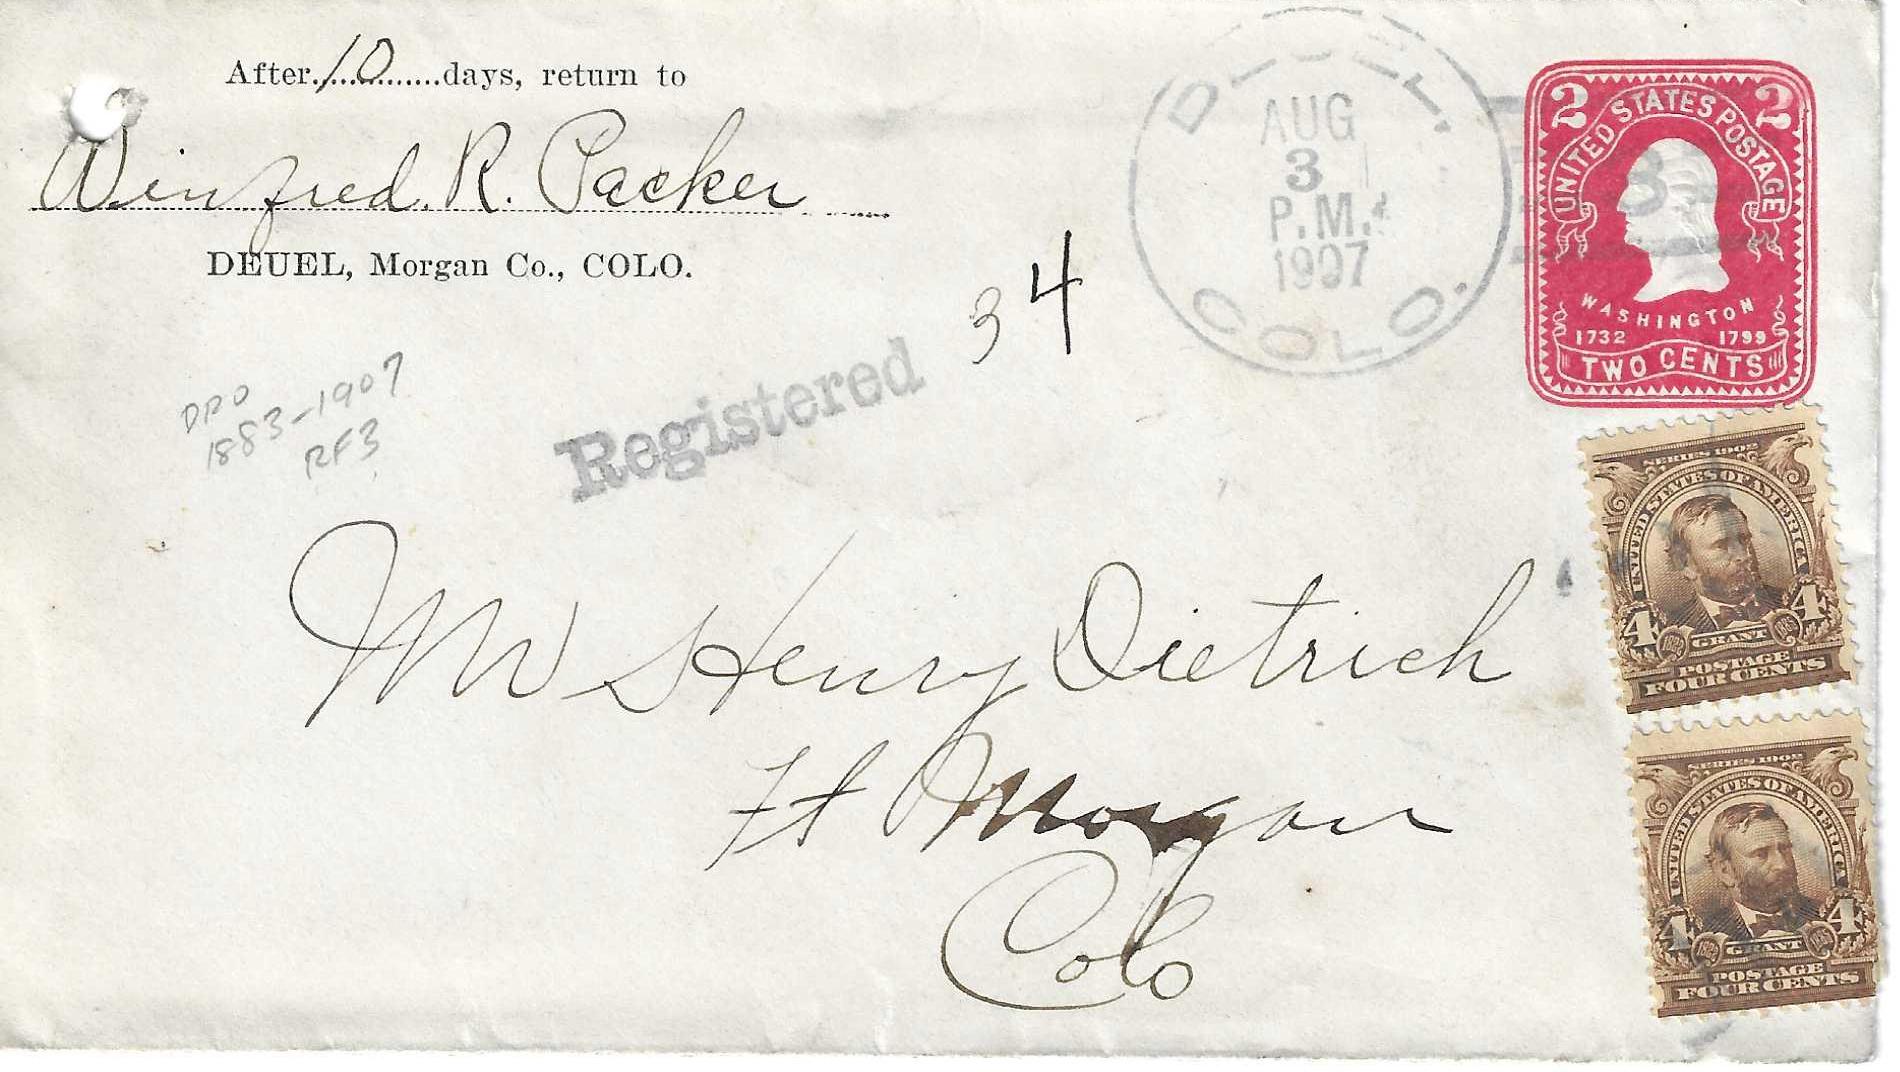 After 10 days, return to
Winfred. R. Packer
DEUEL, Morgan Co., COLO.
DEUEL,
AUG
3
P.M.
1907
COLO.
2 2
UNITED STATES POSTAGE
WASHINGTON
1732 1799
TWO CENTS
3
3 4
DPO
1883-1907
RF3
Registered
SERIES 1902
UNITED STATES OF AMERICA
4 4
GRANT
POSTAGE
FOUR CENTS
Mr Henry Dietrich
Ft Morgan
Colo
SERIES 1902
UNITED STATES OF AMERICA
4 4
GRANT
POSTAGE
FOUR CENTS